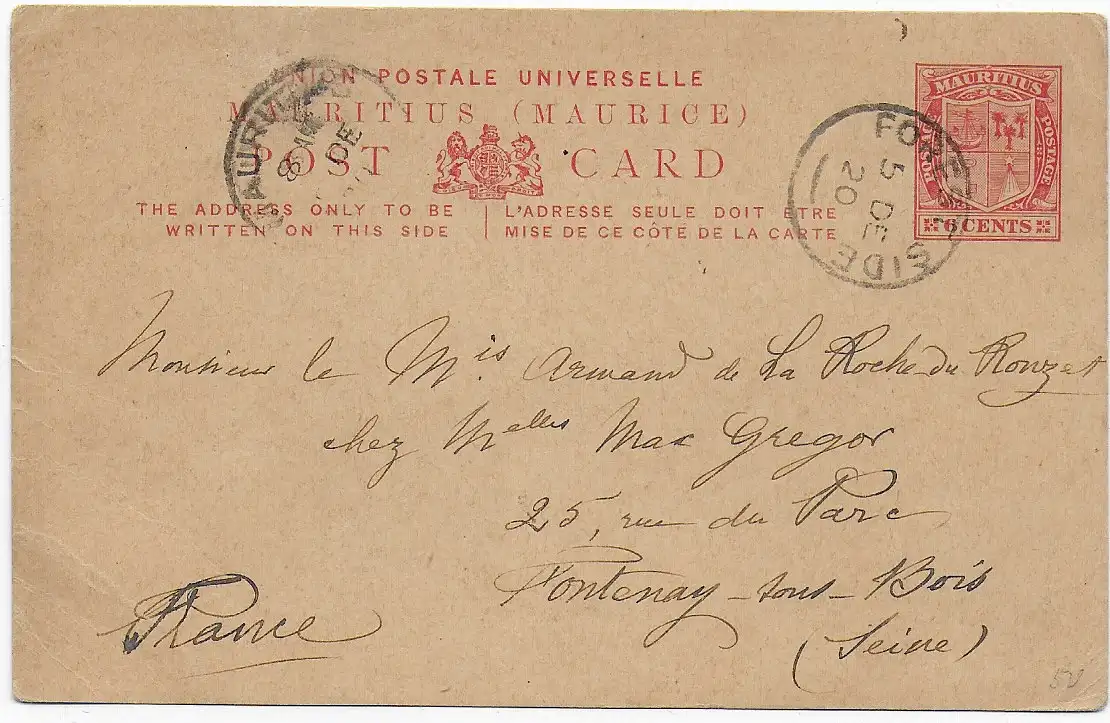 UNION POSTALE UNIVERSELLE
MAURITIUS (MAURICE)
POST CARD
THE ADDRESS ONLY TO BE
WRITTEN ON THIS SIDE
L'ADRESSE SEULE DOIT ETRE
MISE DE CE CÔTE DE LA CARTE
MAURITIUS
POSTAGE
POSTAGE
6 CENTS
8 AM
DE
FOREST SIDE
5 DE
20
Monsieur le Mis Armand de La Roche du Ronzet
chez Melles Mac Gregor
25, rue du Parc
Fontenay-sous-Bois
(Seine)
France
50